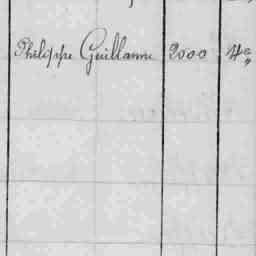 Philippe Guillaume 2000 4e